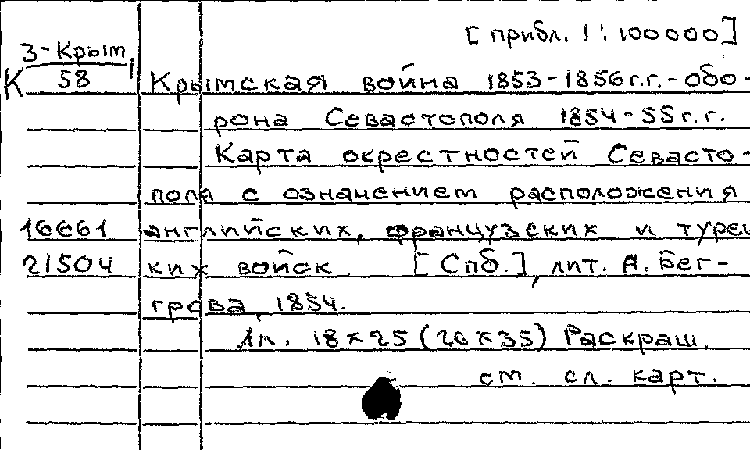 [прибл. 1:100000]
3-Крым
К 58
Крымская война 1853-1856 г.г.-обо-
рона Севастополя 1854-55 г.г.
Карта окрестностей Севасто-
поля с означением расположения
16661 английских, французских и турец
21504 ких войск [Спб.], лит. А. Бег-
грова, 1854.
1л. 18x25 (26x35) Раскраш.
см. сл. карт.